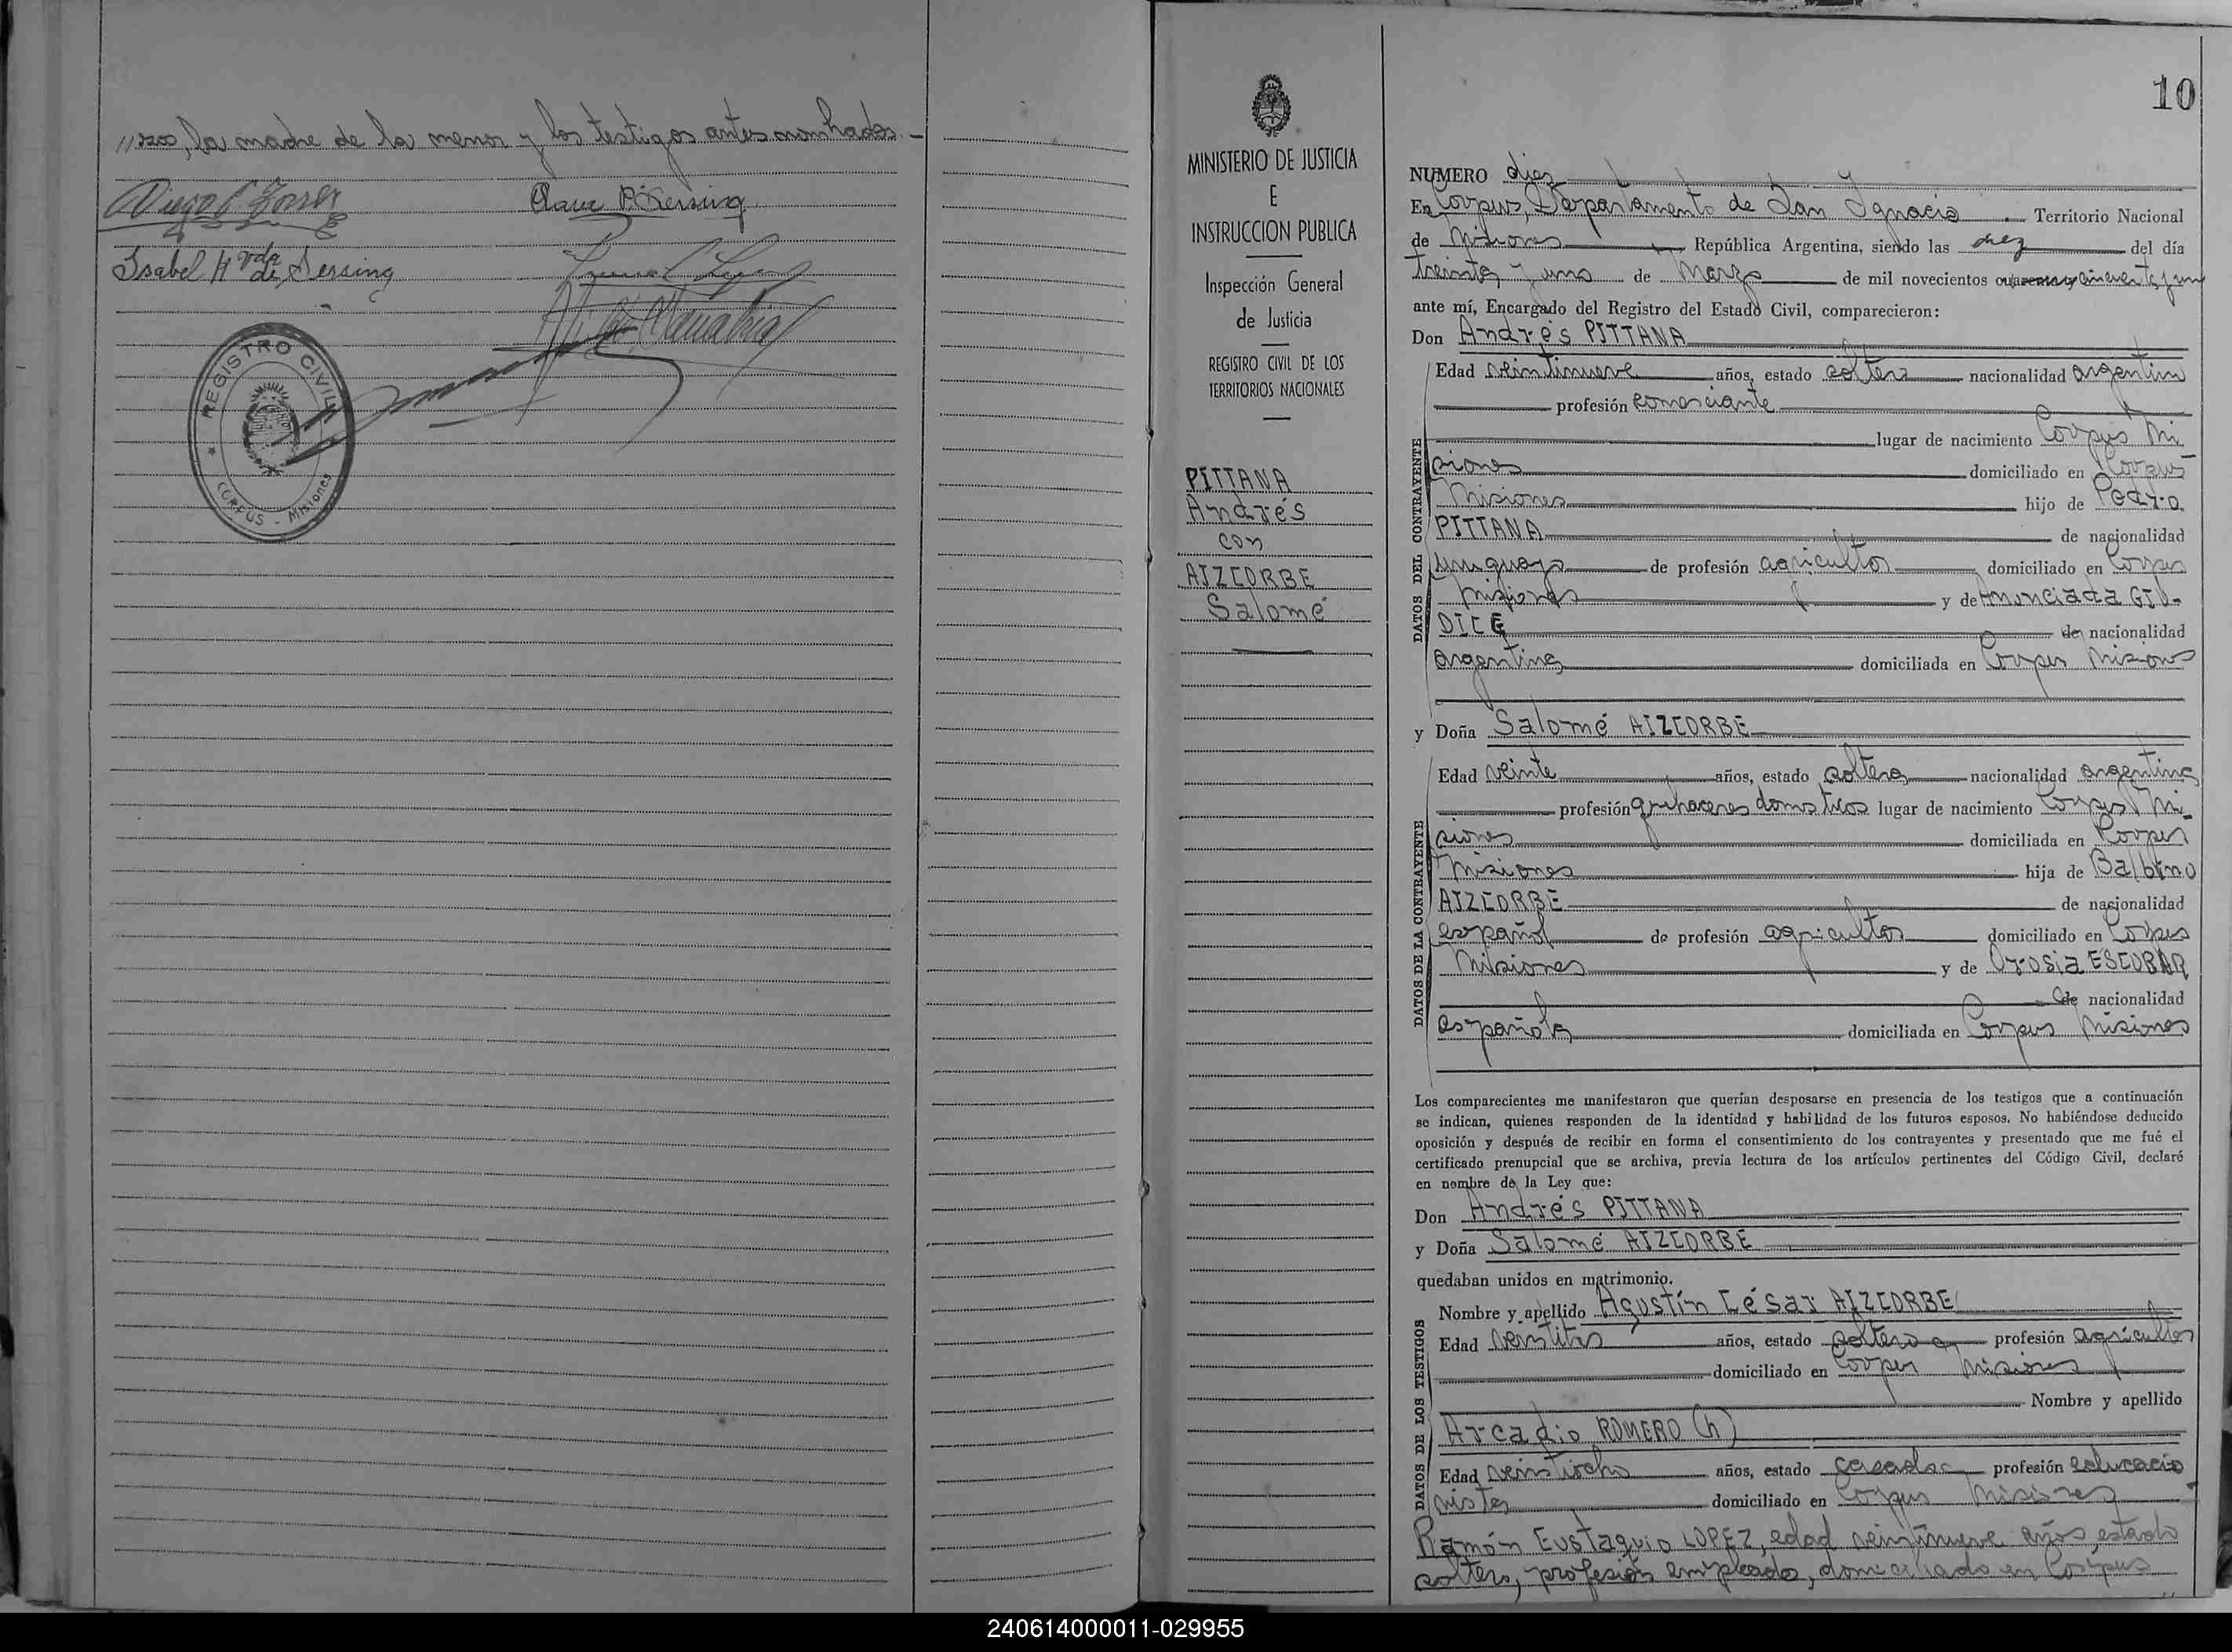 la madre de la menor y los testigos antes nombrados.-
Isabel H vda de Sersing
REGISTRO CIVIL
CORPUS - Misiones
MINISTERIO DE JUSTICIA
E
INSTRUCCION PUBLICA
Inspección General
de Justicia
REGISTRO CIVIL DE LOS
TERRITORIOS NACIONALES
PITTANA
Andrés
con
AIZCORBE
Salomé
10
NUMERO diez
En Corpus, Departamento de San Ignacio. Territorio Nacional
de Misiones República Argentina, siendo las diez del día
treinta y uno de Marzo de mil novecientos cincuenta y un
ante mí, Encargado del Registro del Estado Civil, comparecieron:
Don Andrés PITTANA
DATOS DEL CONTRAYENTE
Edad veintinueve años, estado soltero nacionalidad argentino
profesión comerciante
lugar de nacimiento Corpus Mi
siones domiciliado en Corpus
Misiones hijo de Pedro
PITTANA de nacionalidad
uruguayo de profesión agricultor domiciliado en Corpus
Misiones y de Anunciada GIU-
DICE de nacionalidad
argentina domiciliada en Corpus Misiones
y Doña Salomé AIZCORBE
DATOS DE LA CONTRAYENTE
Edad veinte años, estado soltera nacionalidad argentina
profesión quehaceres domesticos lugar de nacimiento Corpus Mi-
siones domiciliada en Corpus
Misiones hija de Balbino
AIZCORBE de nacionalidad
español de profesión agricultor domiciliado en Corpus
Misiones y de Orosia ESCOBAR
de nacionalidad
española domiciliada en Corpus Misiones
Los comparecientes me manifestaron que querían desposarse en presencia de los testigos que a continuación
se indican, quienes responden de la identidad y habilidad de los futuros esposos. No habiéndose deducido
oposición y después de recibir en forma el consentimiento de los contrayentes y presentado que me fué el
certificado prenupcial que se archiva, previa lectura de los artículos pertinentes del Código Civil, declaré
en nombre de la Ley que:
Don Andrés PITTANA
y Doña Salomé AIZCORBE
quedaban unidos en matrimonio.
DATOS DE LOS TESTIGOS
Nombre y apellido Agustín César AIZCORBE
Edad veintitres años, estado soltero profesión agricultor
domiciliado en Corpus Misiones
Nombre y apellido
Arcadio ROMERO (h)
Edad veintiocho años, estado casado profesión educacio
nista domiciliado en Corpus Misiones
Ramón Eustaquio LOPEZ, edad veintinueve años, estado
soltero, profesión empleado, domiciliado en Corpus
240614000011-029955